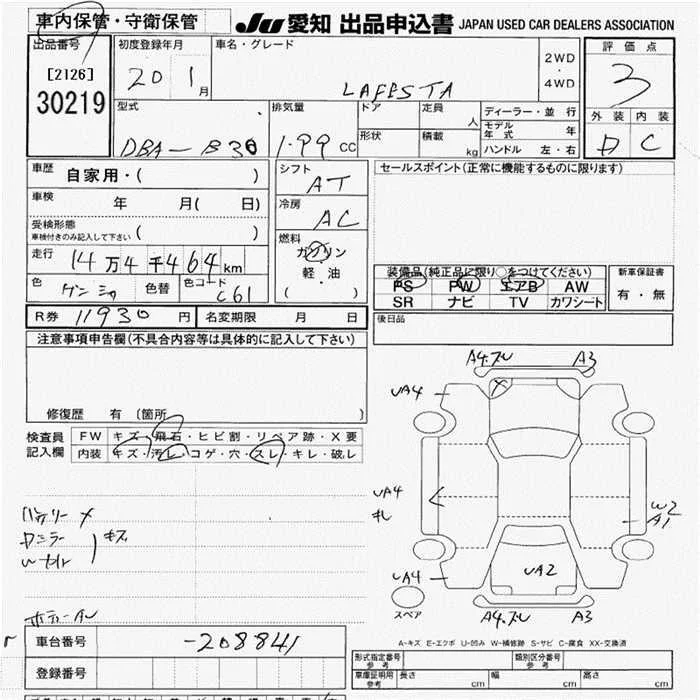 車内保管・守衛保管
JU 愛知 出品申込書 JAPAN USED CAR DEALERS ASSOCIATION
出品番号 初度登録年月 車名・グレード 評価点
[2126] 2WD
30219 20 1月 LAFESTA ・ 3
4WD
型式 排気量 ドア 定員 人 ディーラー・並行 外装 内装
モデル年式 年
DBA-B30 1.99 CC 形状 積載 kg ハンドル 左・右 D C
車歴 自家用・( ) シフト AT セールスポイント(正常に機能するものに限ります)
車検 年 月( 日) 冷房 AC
受検形態
車検付きのみ記入して下さい ( ) 燃料 ガソリン
走行 14万4千464km 軽・油
装備品(純正品に限り○をつけてください) 新車保証書
色 ゲンシヨ 色替 色コード C61 ( )
PS PW エアB AW 有・無
SR ナビ TV カワシート
R券 11930円 名変期限 月 日 後日品
注意事項申告欄(不具合内容等は具体的に記入して下さい)
修復歴 有 〔箇所 〕
検査員記入欄 FW キズ・飛石・ヒビ割・リペア跡・X要
内装 キズ・汚レ・コゲ・穴・スレ・キレ・破レ
A4.スレ A3
UA4 X
UA4
キレ
W2
A1
バッテリー メ
キズ
UA4 UA2
スペア A4.スレ A3
A-キズ E-エクボ U-凹み W-補修跡 S-サビ C-腐食 XX-交換済
車台番号 -208841
登録番号
形式指定番号 参考 類別区分番号 参考
車庫証明用 参考 長さ cm 幅 cm 高さ cm